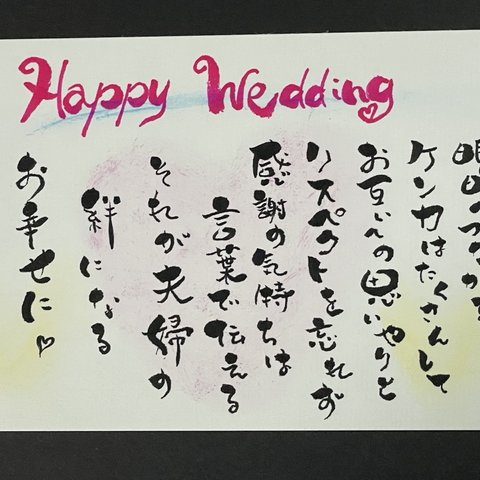 Happy Wedding
つながる
ケンカはたくさんして
お互いの思いやりと
リスペクトを忘れず
感謝の気持ちは
言葉で伝える
それが夫婦の
絆になる
お幸せに♡